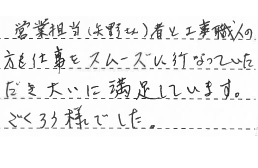 営業担当(矢野さん)者と工事職人の
方も仕事をスムーズに行なっていた
だき大いに満足しています。
ごくろう様でした。